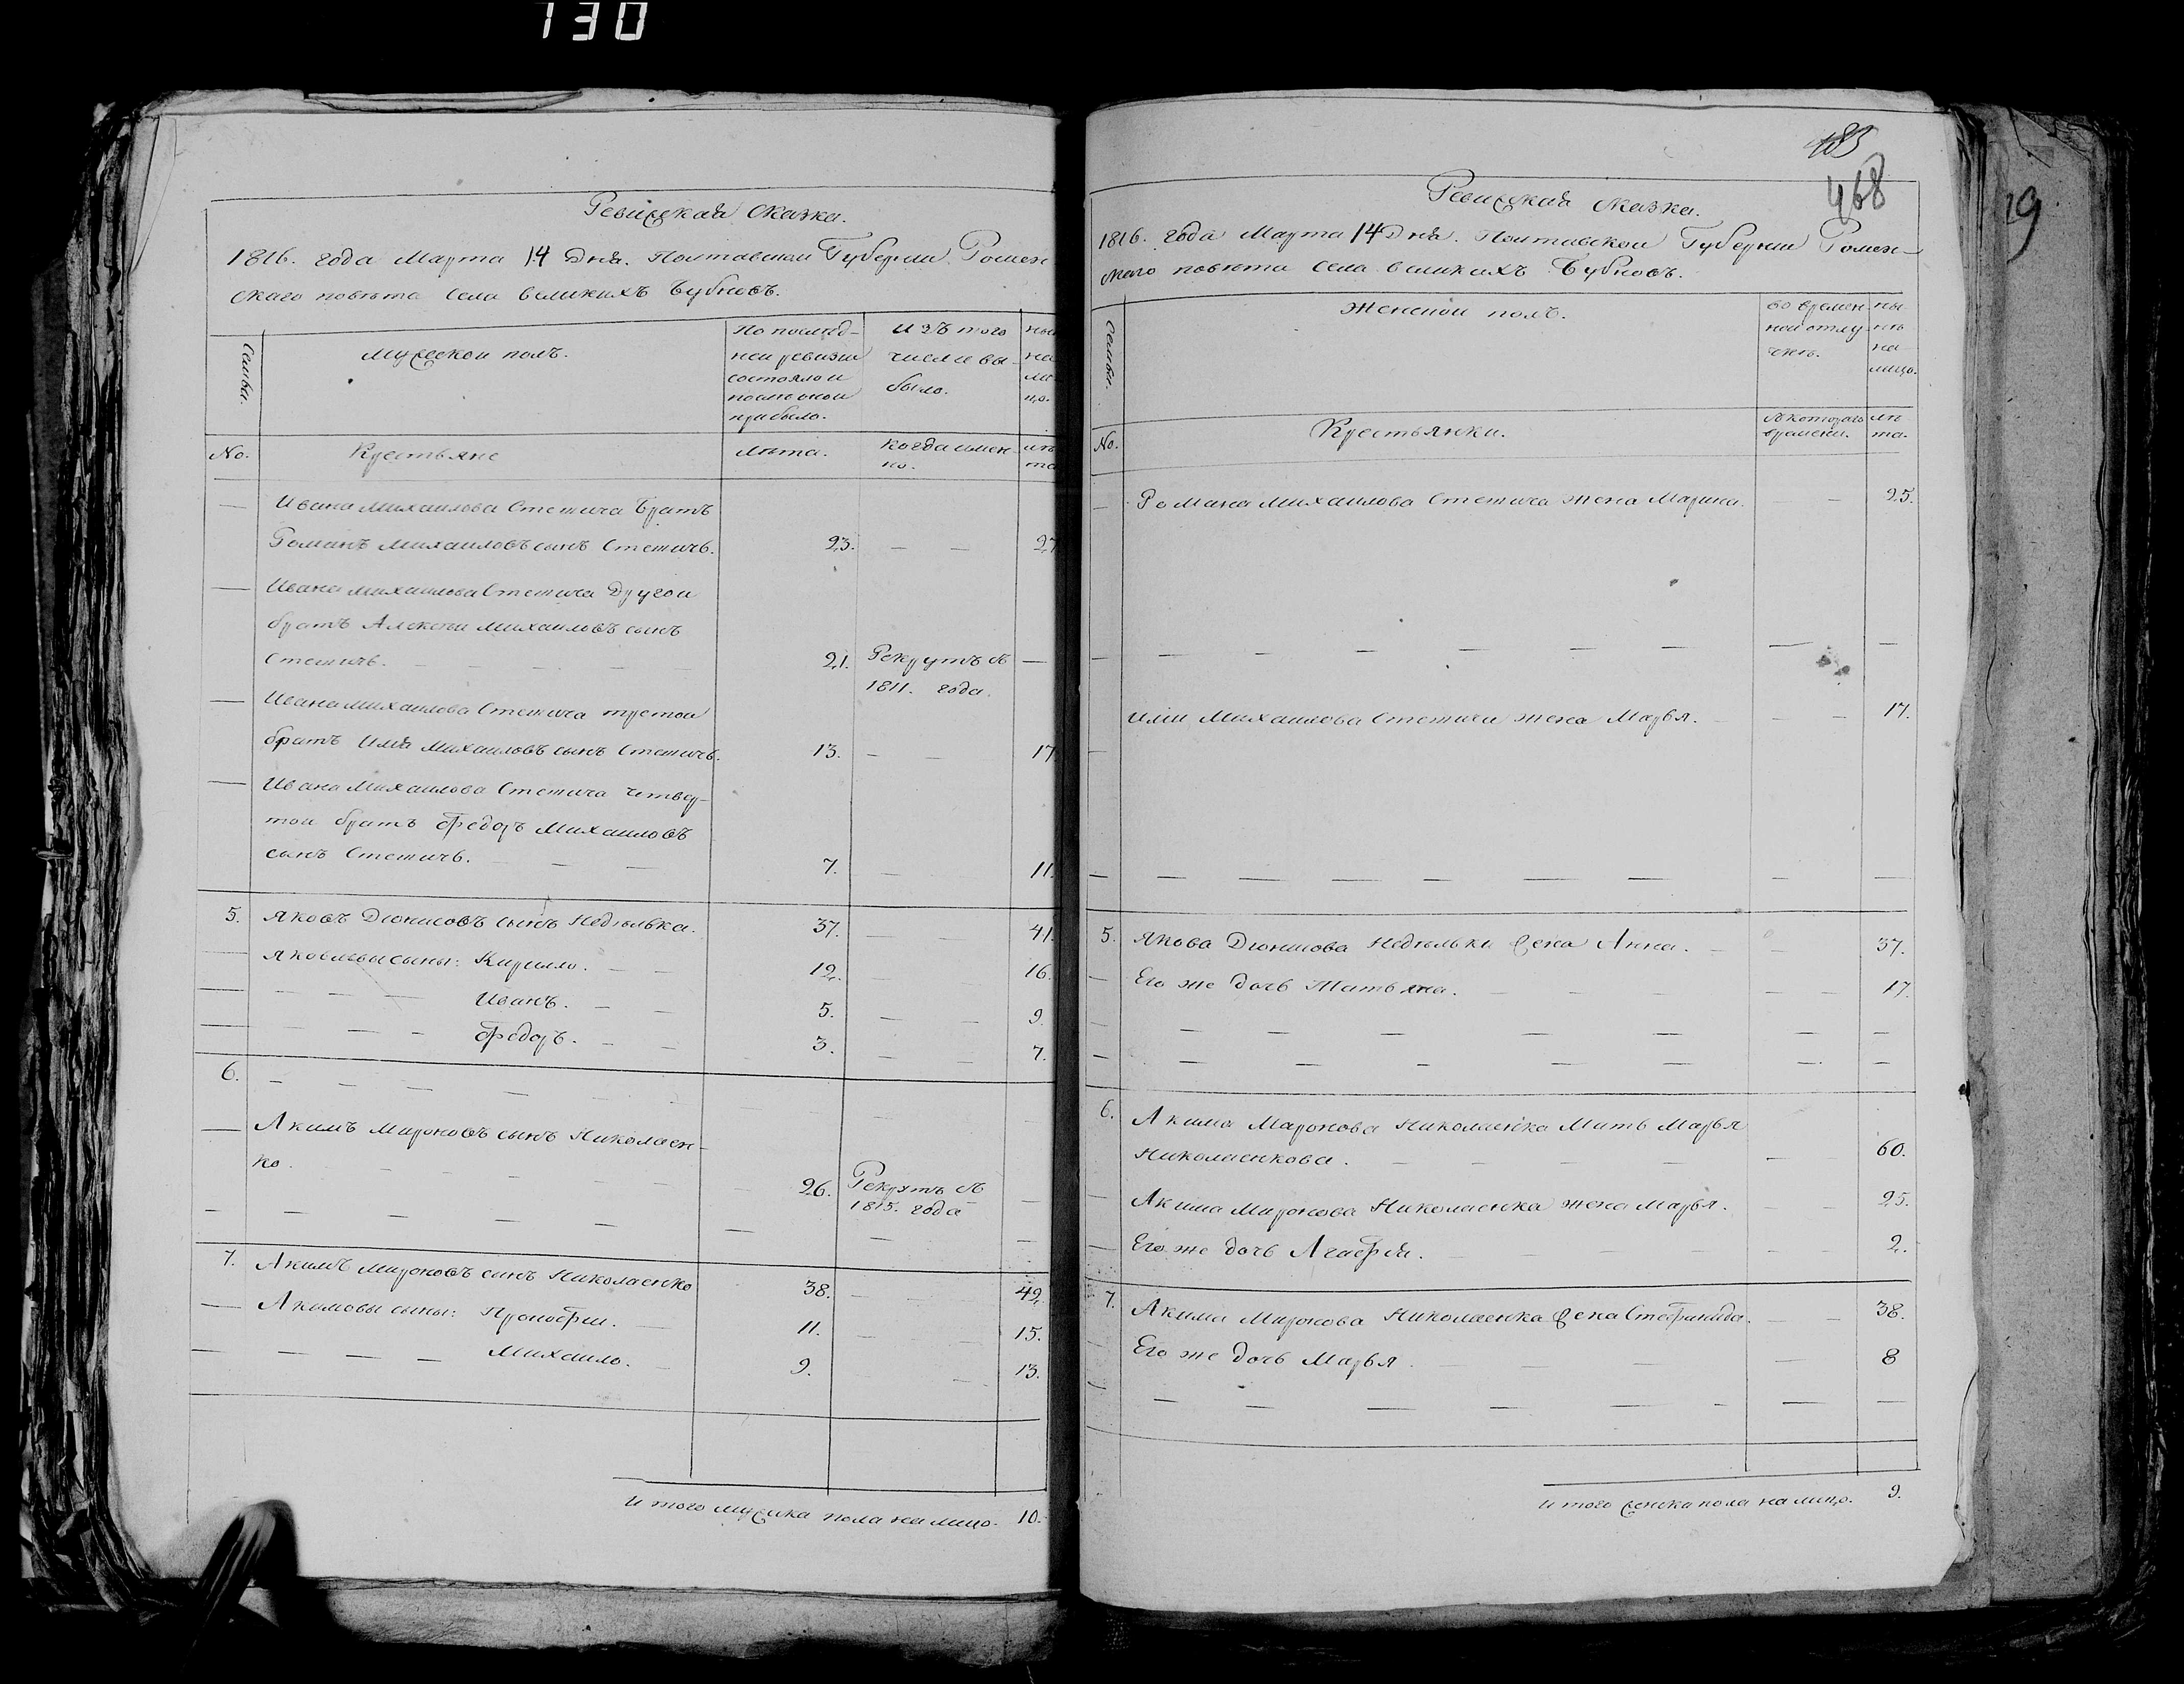 130
Ревизская сказка.
1816. года Марта 14 Дня. Полтавской Губернии Ромен
скаго повѣта села великихъ Бубновъ.
Семьи.
Мужеской полъ.
По послед-
ней ревизіи
состояло и
после оной
прибыло.
Изъ того
числа вы-
было.
ны
на
ли
цо.
No.
Крестьяне
Лѣта.
когда имен-
но.
лѣ
та
Ивана Михаилова Стешича братъ
Романъ Михаиловъ сынъ Стешичь. 23. — — 27
Ивана Михаилова Стешича Другои
братъ Алексеи Михаиловъ сынъ
Стешичь. 21. Рекрутъ съ —
1811. года.
Ивана Михаилова Стешича третои
братъ Илiя Михаиловъ сынъ Стешичь. 13. — — 17
Ивана Михаилова Стешича четвер-
той братъ Федоръ Михаиловъ
сынъ Стешичь. 7. — 11.
5. Яковъ Дионисовъ сынъ Недѣлька. 37. — — 41.
Яковлевы сыны: Кирилло. 12. — 16.
Иванъ. 5. — — 9.
Федоръ. 3. — — 7.
6.
Акимъ Мироновъ сынъ Николаен-
ко. 26. Рекрутъ съ —
1815. года
7. Акимъ Мироновъ сынъ Николаенко 38. — — 42.
Акимовы сыны: Прокофіи. 11. — 15.
Михаило. 9. — 13.
Итого мужска пола на лицо. 10.
483
468
19
Ревизская сказка.
1816. года Марта 14 Дня. Полтавской Губернии Ромен-
скаго повѣта села великихъ Бубновъ.
Семьи.
Женской полъ.
во времен-
ной отлу-
чкѣ.
ны-
нѣ
на
лицо.
No.
Крестьянки.
съ котораго
времени.
лѣ
та.
Романа Михаилова Стешича жена Марина. — 25.
Илiи Михаилова Стешича жена Марья. — — 17.
5. Якова Дионисова Недѣльки жена Анна. — 37.
Его же дочь Татьяна. — — 17.
6. Акима Миронова Николаенка Мать Марья
Николаенкова. — 60.
Акима Миронова Николаенка жена Марья. — — 25.
Его же дочь Агафiя. — 2.
7. Акима Миронова Николаенка жена Стефанида. — — 38.
Его же дочь Марья. — 8
Итого женска пола на лицо. 9.